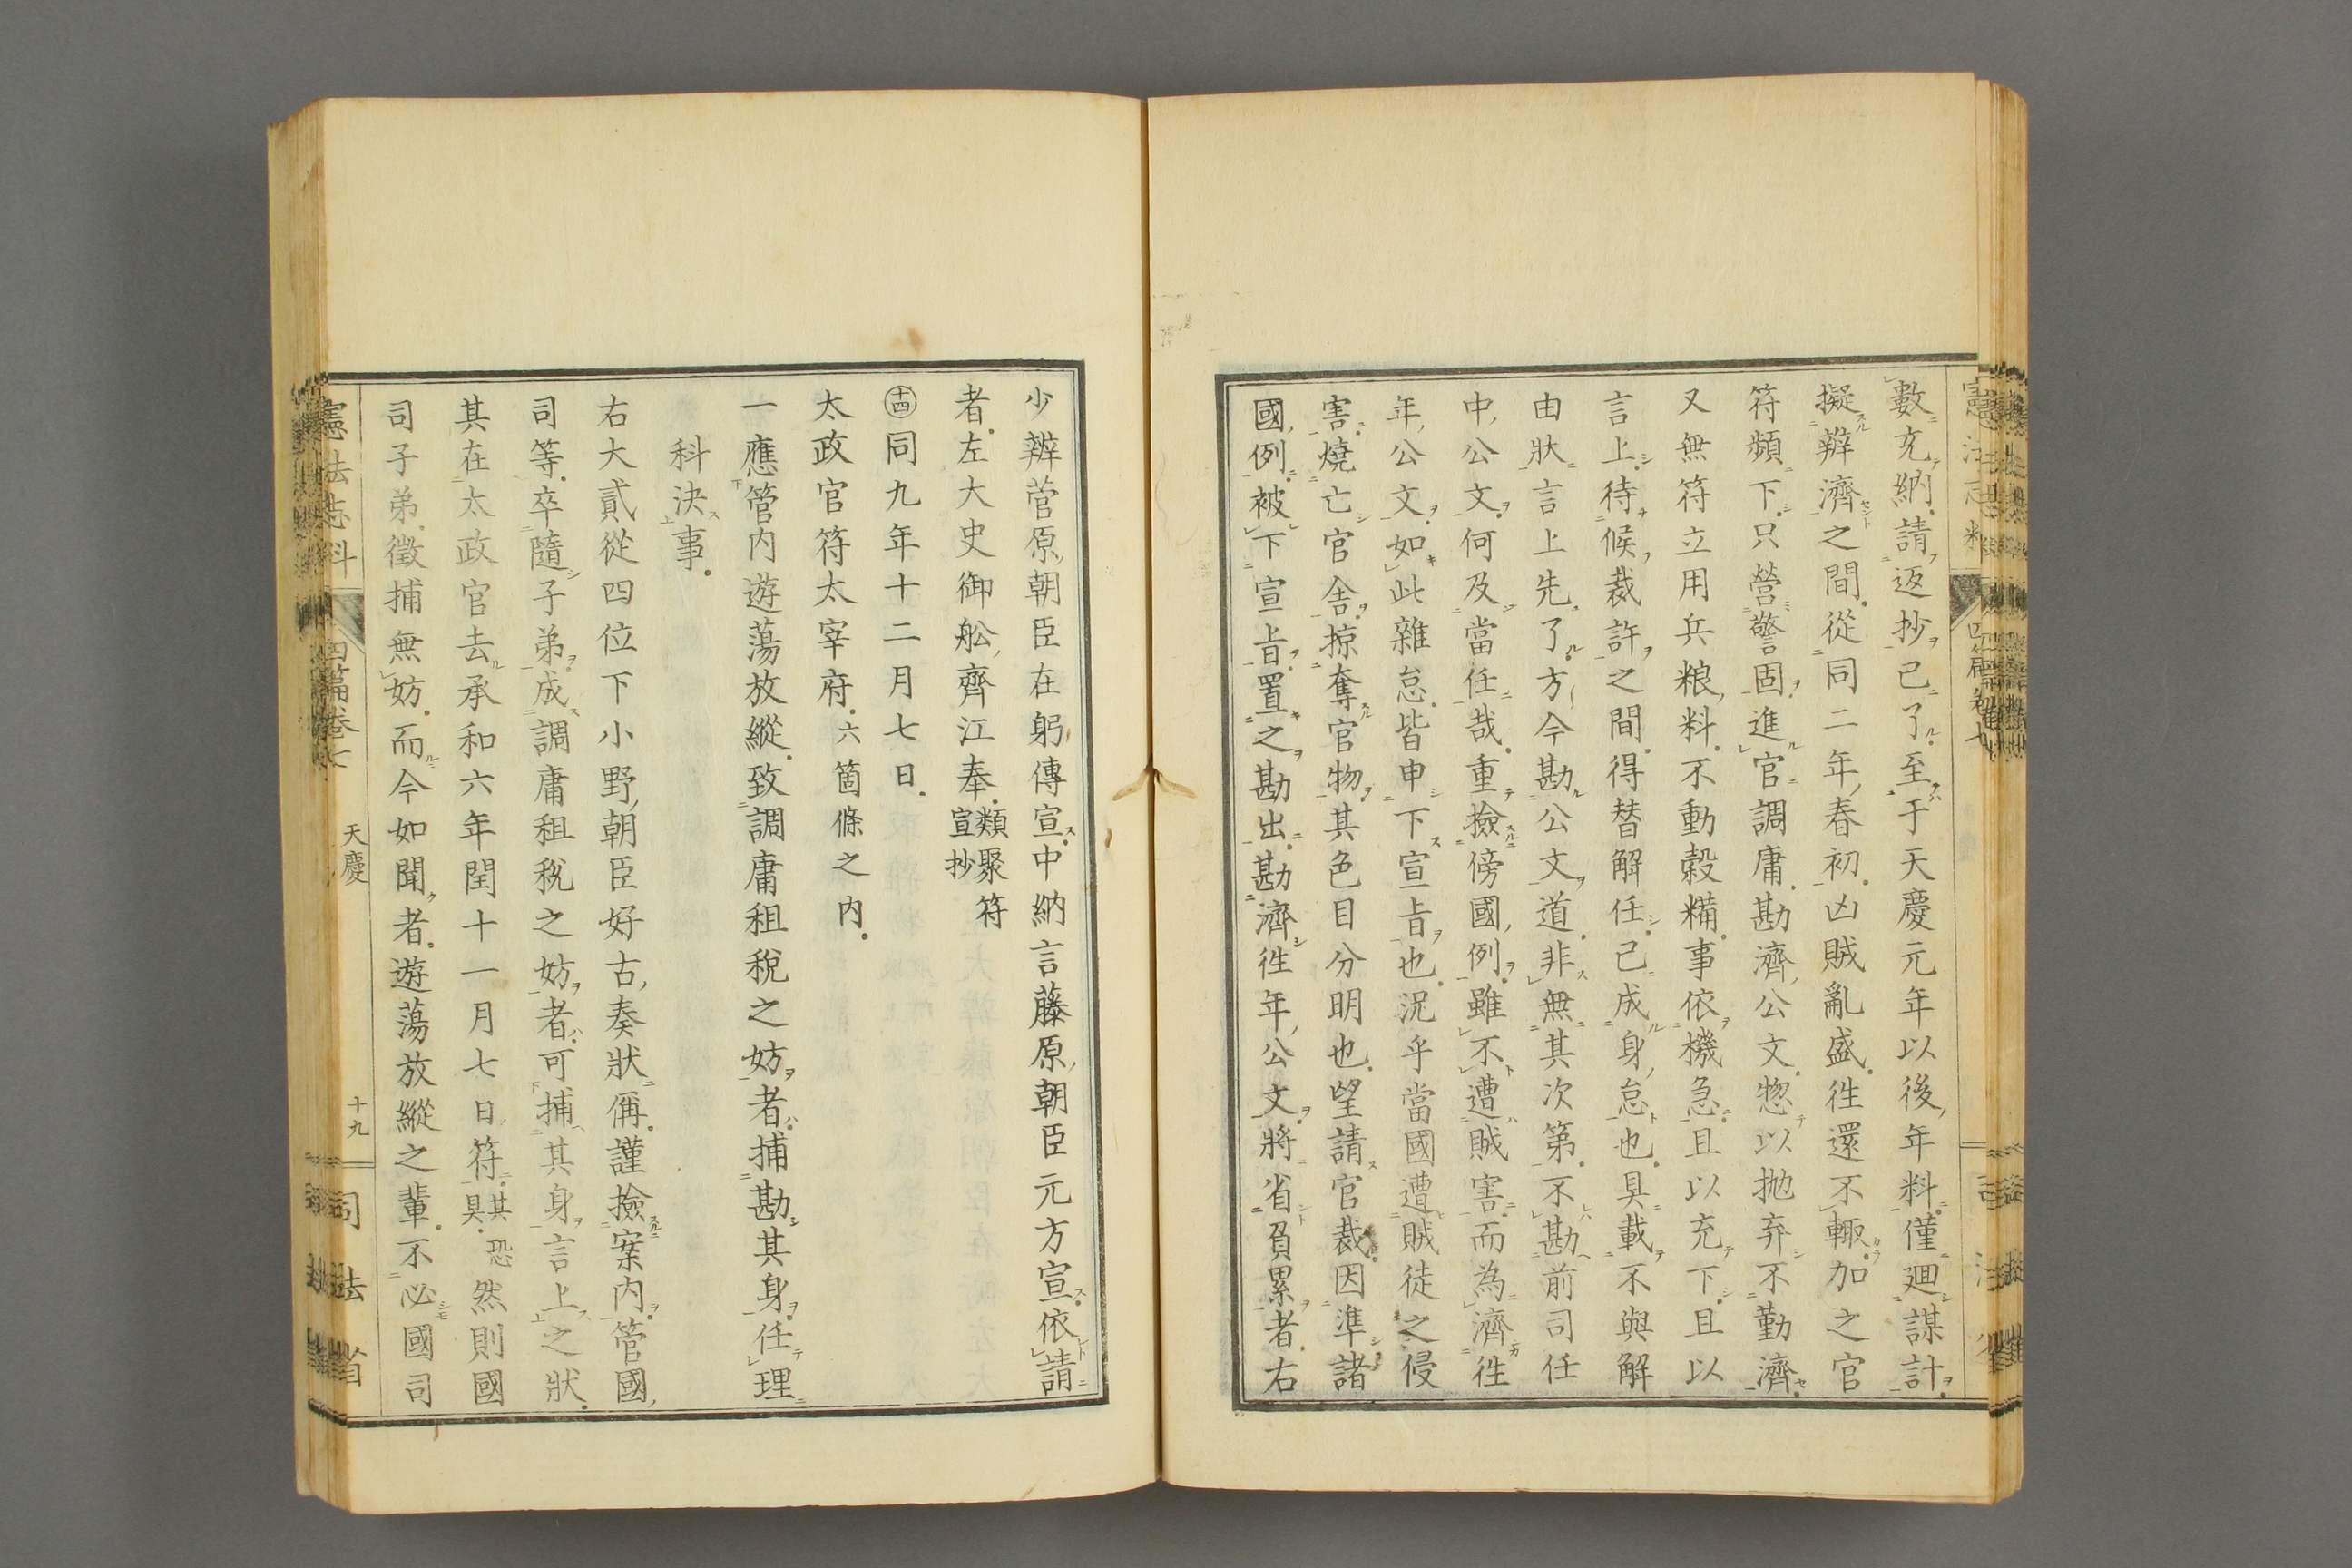 數充納請返抄已了至于天慶元年以後年料僅廻謀計
擬辨濟之間從同二年春初凶賊亂盛徃還不輙加之官
符頻下只營警固進官調庸勘濟公文惣以抛弃不勤濟
又無符立用兵粮料不動穀糒事依機急且以充下且以
言上待候裁許之間得替解任已成身怠也具載不與解
由狀言上先了方今勘公文道非無其次第不勘前司任
中公文何及當任哉重撿傍國例雖不遭賊害而為濟徃
年公文如此雜怠皆申下宣旨也況乎當國遭賊徒之侵
害燒亡官舍掠奪官物其色目分明也望請官裁因準諸
國例被下宣旨置之勘出勘濟徃年公文將省負累者右
少辨菅原朝臣在躬傳宣中納言藤原朝臣元方宣依請
者左大史御舩齊江奉類聚符宣抄
㊃同九年十二月七日
太政官符太宰府六箇條之内
一應管内遊蕩放縱致調庸租稅之妨者捕勘其身任理
科決事
右大貳從四位下小野朝臣好古奏狀偁謹撿案内管國
司等卒隨子弟成調庸租稅之妨者可捕其身言上之狀
其在太政官去承和六年閏十一月七日符其恐具然則國
司子弟徵捕無妨而今如聞者遊蕩放縱之輩不必國司
憲法志料 四篇卷七 天慶 十九 司法省